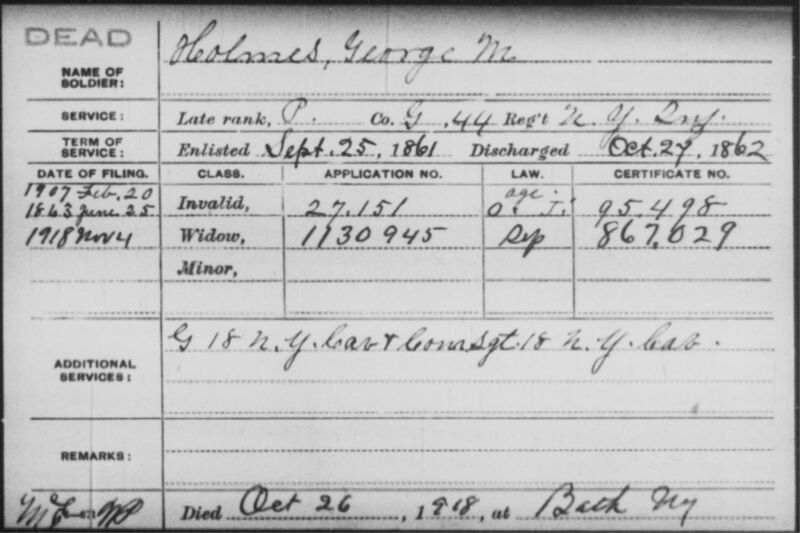 DEAD
NAME OF SOLDIER: Holmes, George M
SERVICE: Late rank, P. Co. G, 44 Reg't N. Y. Inf.
TERM OF SERVICE: Enlisted Sept. 25, 1861 Discharged Oct. 27, 1862
DATE OF FILING. CLASS. APPLICATION NO. LAW. CERTIFICATE NO.
1907 Feb. 20 age.
1863 June 25 Invalid, 27.151 95.498
1918 Nov 4 Widow, 1130945 Sep 867,029
Minor,
ADDITIONAL SERVICES: G 18 N. Y. Cav & Com Sgt. 18 N. Y. Cav.
REMARKS:
Died Oct 26, 1918, at Bath NY